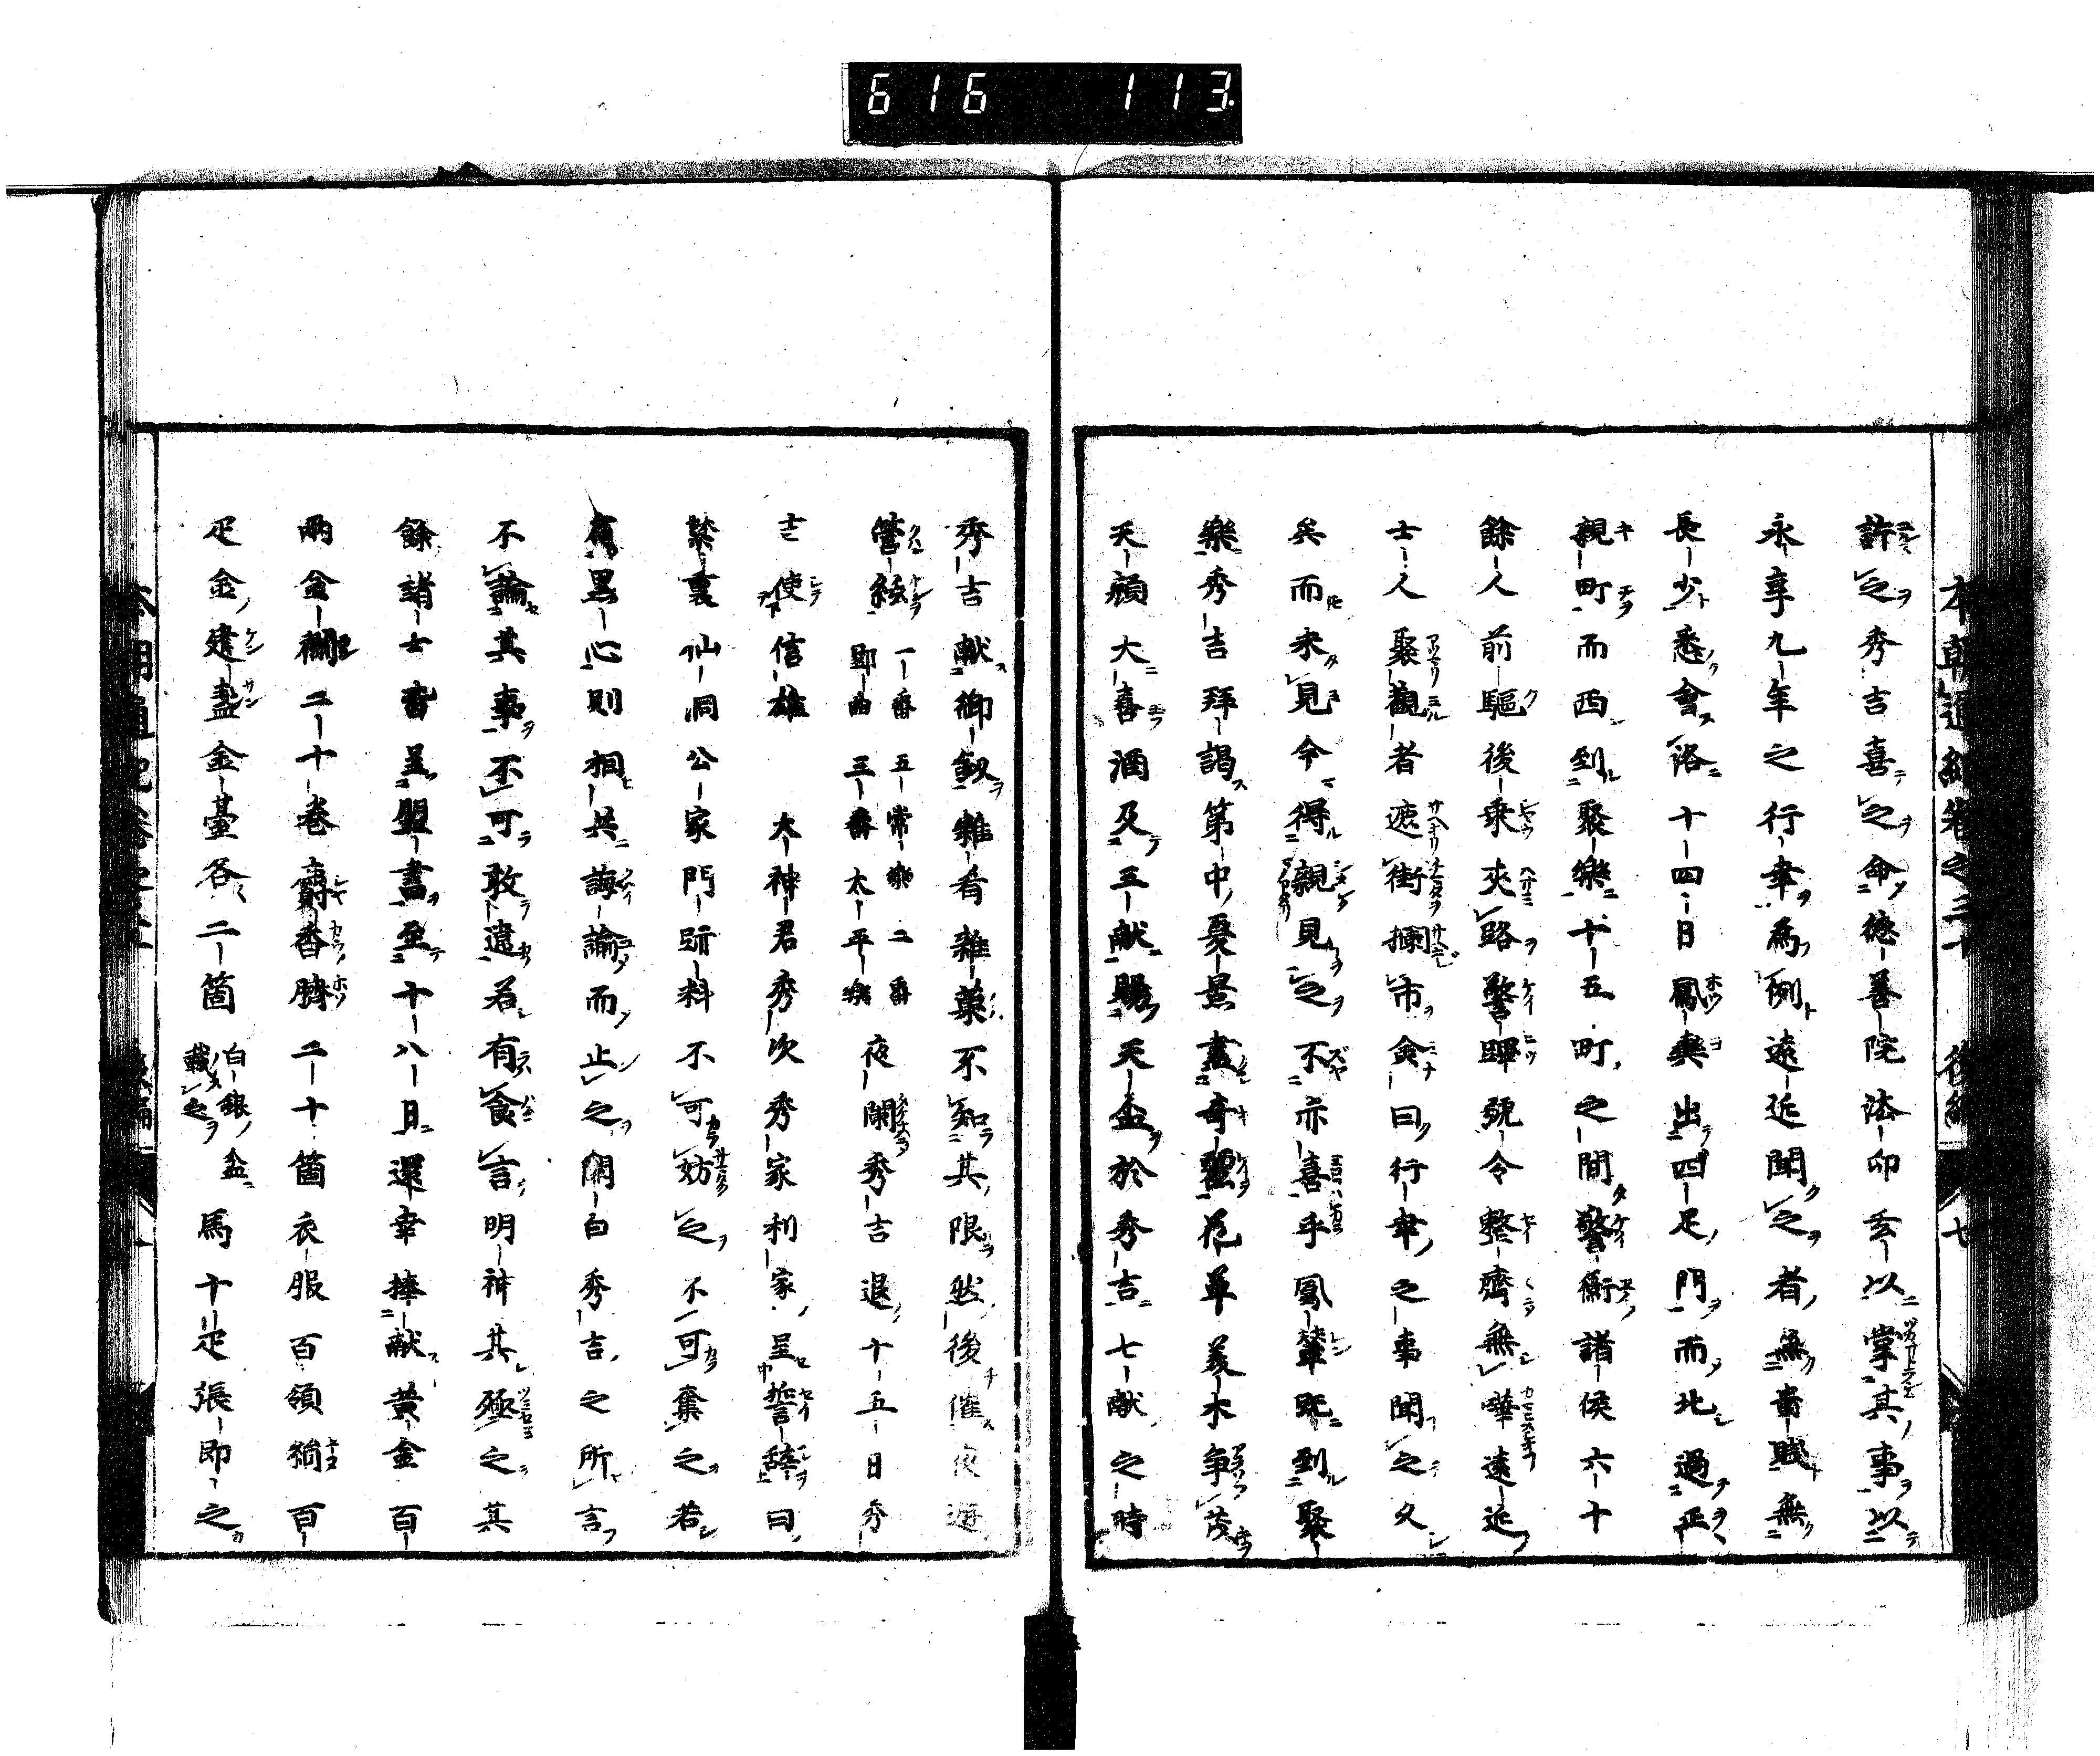 616 113
本朝通紀卷之三十 後編 七
許之秀吉喜之命德善院法印玄以掌其事以
永享九年之行幸為例遠近聞之者無貴賤無
長少悉會洛十四日鳳輿出四足門而北過正
親町而西到聚樂十五町之間警衛諸侯六十
餘人前驅後乘夾路警蹕號令整齊無嘩遠近
士人聚觀者遮街攔市僉曰行幸之事聞之久
矣而未見今得親見之不亦喜乎鳳輦既到聚
樂秀吉拜謁第中憂景盡奇麗花草美木争茂
天顔大喜酒及五献賜天盃於秀吉七献之時
秀吉献御劔雜肴雜菓不知其限然後催夜遊
管絃一番五常樂二番郢曲三番太平樂夜闌秀吉退十五日秀
吉使信雄 大神君秀次秀家利家呈誓辞曰
禁裏仙洞公家門跡料不可妨之不可奪之若
有黒心則相共誨諭而止之關白秀吉之所言
不論其事不可敢違若有食言明神其殛之其
餘諸士皆並盟書至十八日還幸捧献黄金百
兩金襴二十巻麝香臍二十箇衣服百領猶百
疋金建盞金臺各二箇白銀盆載之馬十疋張即之